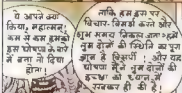 ये आपने क्या
किया, महात्मन्!
कम से कम हमको
इस घोषणा के बारे
में बता तो दिया
होता।
ताकि हम इस पर
विचार-विमर्श करते और
शुभ समय निकल जाता। हमें
तुम दोनों की स्थिति का पूरा
ज्ञान है त्रिसर्पी। और यह
घोषणा मैंने तुम दोनों की
इच्छा को ध्यान में
रखकर ही की है।